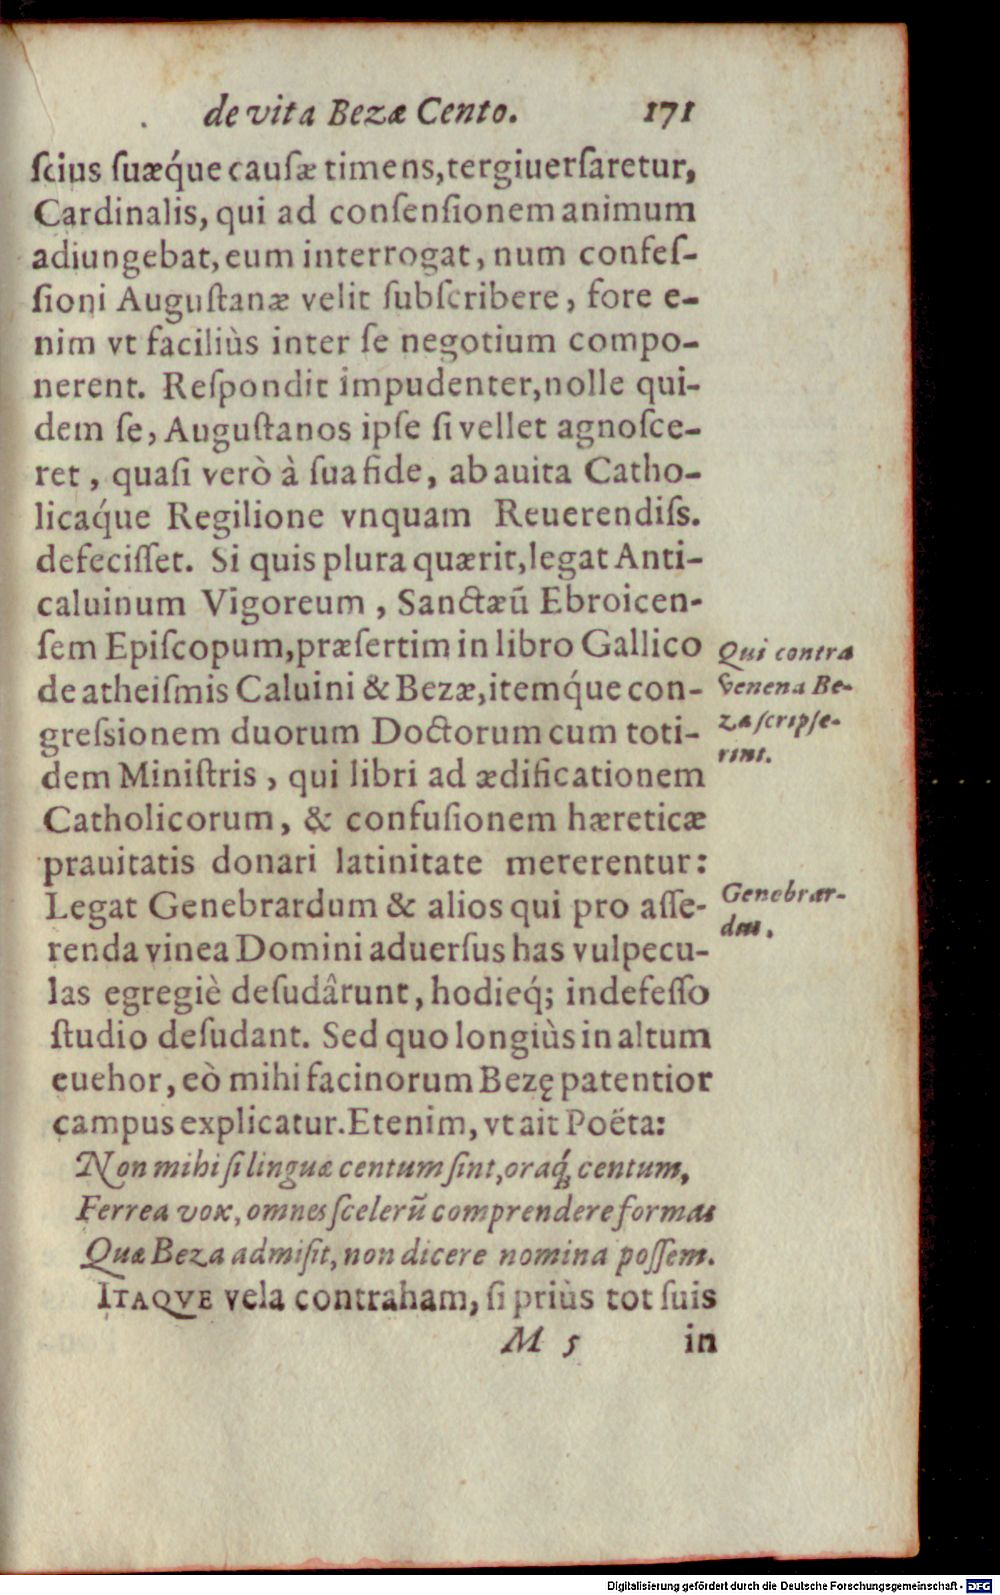 de vita Bezæ Cento. 171
ſcius ſuæq́ue cauſæ timens, tergiuerſaretur,
Cardinalis, qui ad conſenſionem animum
adiungebat, eum interrogat, num confeſ-
ſioni Auguſtanæ velit ſubſcribere, fore e-
nim vt faciliùs inter ſe negotium compo-
nerent. Reſpondit impudenter, nolle qui-
dem ſe, Auguſtanos ipſe ſi vellet agnoſce-
ret, quaſi verò à ſua fide, ab auita Catho-
licaq́ue Regilione vnquam Reuerendiſs.
defeciſſet. Si quis plura quærit, legat Anti-
caluinum Vigoreum, Sanctæū Ebroicen-
ſem Epiſcopum, præſertim in libro Gallico
de atheiſmis Caluini & Bezæ, itemq́ue con-
greſsionem duorum Doctorum cum toti-
dem Miniſtris, qui libri ad ædificationem
Catholicorum, & confuſionem hæreticæ
prauitatis donari latinitate mererentur:
Legat Genebrardum & alios qui pro aſſe-
renda vinea Domini aduerſus has vulpecu-
las egregiè deſudârunt, hodieq́; indefeſſo
ſtudio deſudant. Sed quo longiùs in altum
euehor, eò mihi facinorum Bezę patentior
campus explicatur. Etenim, vt ait Poëta:
Non mihi ſi linguæ centum ſint, oraq́; centum,
Ferrea vox, omnes ſcelerū comprendere formas
Quæ Beza admiſit, non dicere nomina poſſem.
ITAQVE vela contraham, ſi priùs tot ſuis
M 5 in
Qui contra
venena Be-
za ſcripſe-
rint.
Genebrar-
dus.
Digitalisierung gefördert durch die Deutsche Forschungsgemeinschaft - DFG